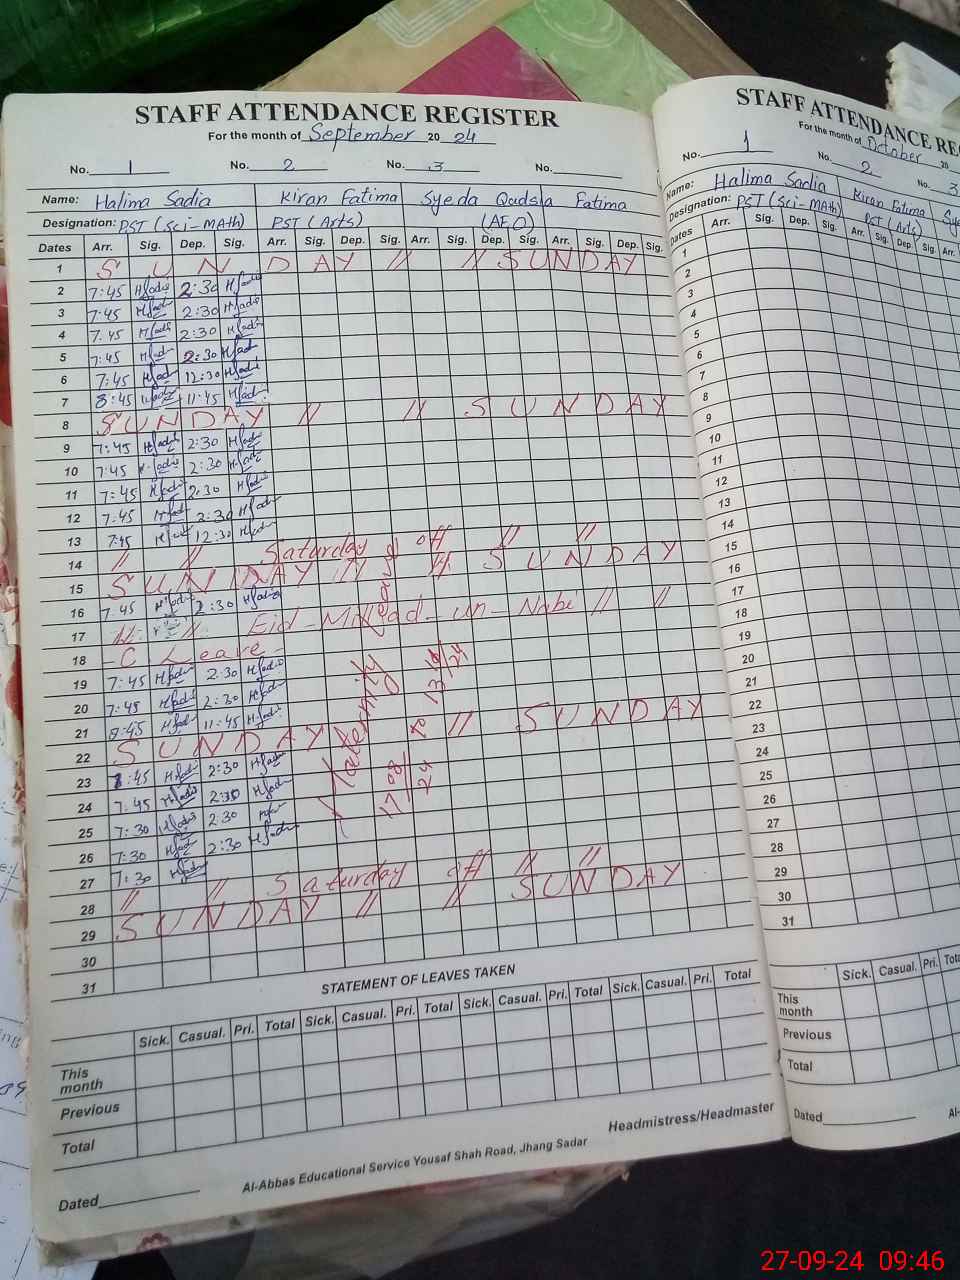 STAFF ATTENDANCE REGISTER
For the month of September 2024
No. 1 No. 2 No. 3 No.
Name: Halima Sadia Kiran Fatima Syeda Qudsia Fatima
Designation: PST (Sci-MAth) PST (Arts) (AEO)
Dates Arr. Sig. Dep. Sig. Arr. Sig. Dep. Sig. Arr. Sig. Dep. Sig. Arr. Sig. Dep. Sig.
1 S U N D A Y // // S U N D A Y
2 7:45 HSadia 2:30 HSadia
3 7:45 HSadia 2:30 HSadia
4 7:45 HSadia 2:30 HSadia
5 7:45 HSadia 2:30 HSadia
6 7:45 HSadia 12:30 HSadia
7 8:45 HSadia 11:45 HSadia
8 S U N D A Y // // S U N D A Y
9 7:45 HSadia 2:30 HSadia
10 7:45 HSadia 2:30 HSadia
11 7:45 HSadia 2:30 HSadia
12 7:45 HSadia 2:30 HSadia
13 7:45 HSadia 12:30 HSadia
14 // // Saturday off // //
15 S U N D A Y // // S U N D A Y
16 7:45 HSadia 2:30 HSadia
17 // // Eid-Milad-un-Nabi // //
18 - C Leave -
19 7:45 HSadia 2:30 HSadia
20 7:45 HSadia 2:30 HSadia
21 8:45 HSadia 11:45 HSadia
22 S U N D A Y // S U N D A Y
23 8:45 HSadia 2:30 HSadia
24 7:45 HSadia 2:30 HSadia
25 7:30 HSadia 2:30
26 7:30 HSadia 2:30 HSadia
27 7:30 HSadia
28 // // Saturday off // //
29 S U N D A Y // // S U N D A Y
30
31
Maternity Leave
17/08/24 to
STATEMENT OF LEAVES TAKEN
Sick. Casual. Pri. Total Sick. Casual. Pri. Total Sick. Casual. Pri. Total Sick. Casual. Pri. Total
This month
Previous
Total
Headmistress/Headmaster
Dated
Al-Abbas Educational Service Yousaf Shah Road, Jhang Sadar
STAFF ATTENDANCE RE
For the month of October 20
No. 1 No. 2 3
Name: Halima Sadia Kiran Fatima Sye
Designation: PST (Sci-MAth) PST (Arts)
Dates Arr. Sig. Dep. Sig. Arr. Sig. Dep. Sig. Arr.
1
2
3
4
5
6
7
8
9
10
11
12
13
14
15
16
17
18
19
20
21
22
23
24
25
26
27
28
29
30
31
Sick. Casual. Pri. Tota
This month
Previous
Total
Dated
Al-
27-09-24 09:46